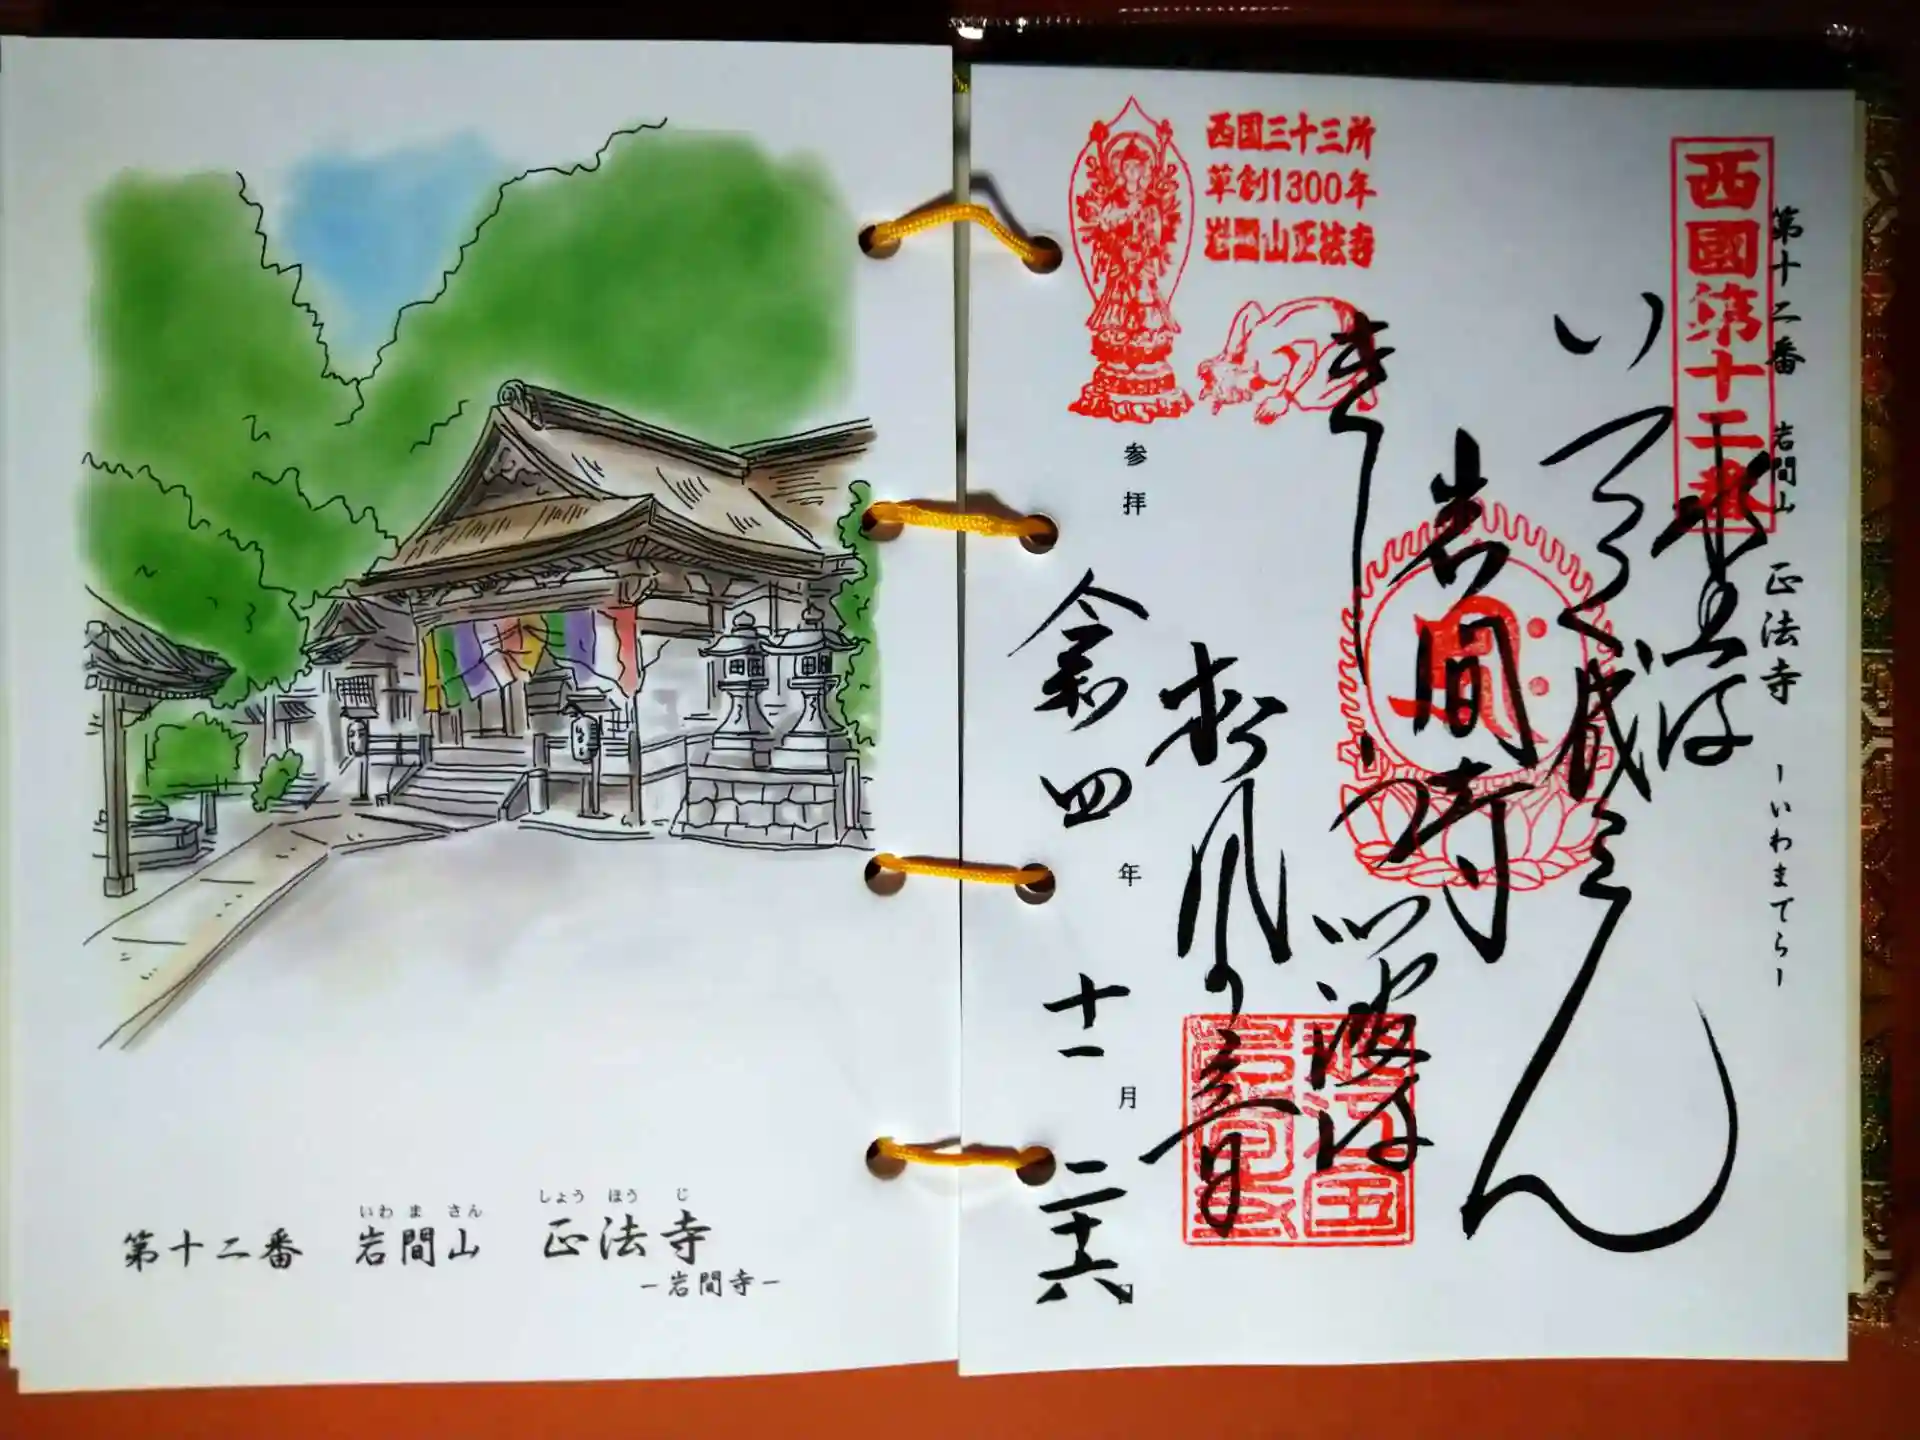 いわ ま さん しょう ほう じ
第十二番 岩間山 正法寺
－岩間寺－
第十二番 岩間山 正法寺 －いわまでら－
西國第十二番
水上は
いつく成らん
岩間寺
きしうつ波は
松風の音
西国三十三所
草創1300年
岩間山正法寺
参拝 令和四年十一月二十六日